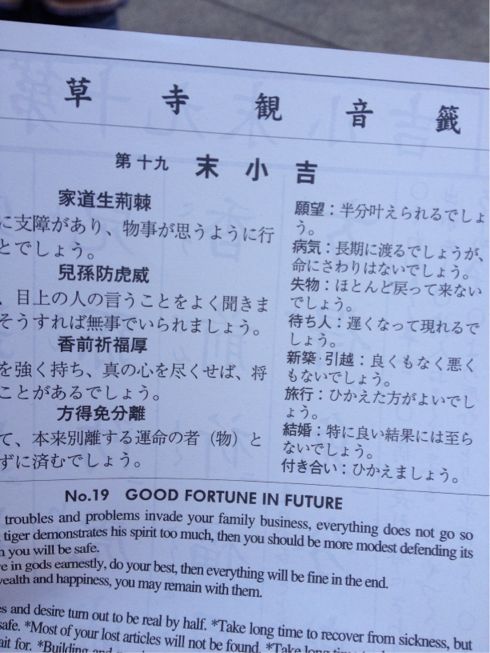 草寺観音籤
第十九 末小吉
家道生荊棘
に支障があり、物事が思うように行
とでしょう。
兒孫防虎威
、目上の人の言うことをよく聞きま
そうすれば無事でいられましょう。
香前祈福厚
を強く持ち、真の心を尽くせば、将
ことがあるでしょう。
方得免分離
て、本来別離する運命の者（物）と
ずに済むでしょう。
願望：半分叶えられるでしょ
う。
病気：長期に渡るでしょうが、
命にさわりはないでしょう。
失物：ほとんど戻って来ない
でしょう。
待ち人：遅くなって現れるで
しょう。
新築・引越：良くもなく悪く
もないでしょう。
旅行：ひかえた方がよいでし
ょう。
結婚：特に良い結果には至ら
ないでしょう。
付き合い：ひかえましょう。
No.19 GOOD FORTUNE IN FUTURE
troubles and problems invade your family business, everything does not go so
tiger demonstrates his spirit too much, then you should be more modest defending its
you will be safe.
e in gods earnestly, do your best, then everything will be fine in the end.
wealth and happiness, you may remain with them.
es and desire turn out to be real by half. *Take long time to recover from sickness, but
safe. *Most of your lost articles will not be found. *Take long time
ait for. *Building and